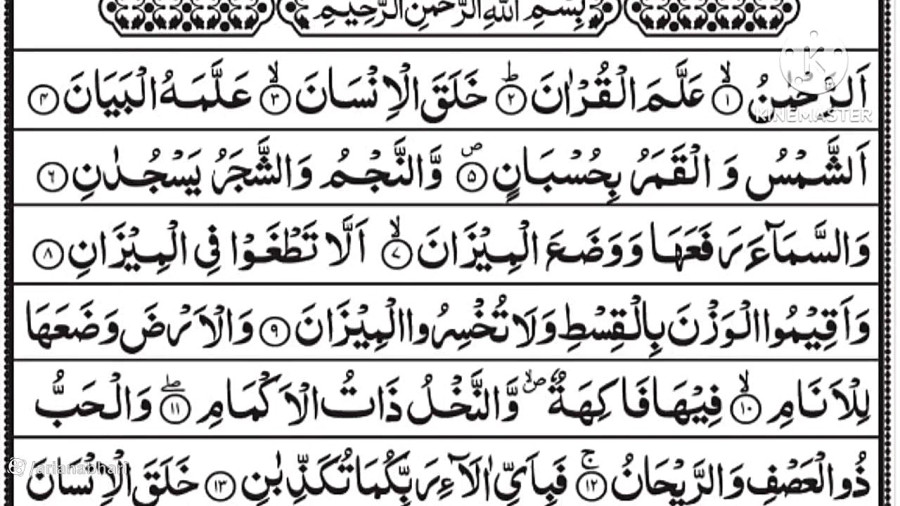 بِسْمِ اللهِ الرَّحْمٰنِ الرَّحِيْمِ
اَلرَّحْمٰنُ ۙ﴿۱﴾ عَلَّمَ الْقُرْاٰنَ ؕ﴿۲﴾ خَلَقَ الْاِنْسَانَ ۙ﴿۳﴾ عَلَّمَهُ الْبَيَانَ ﴿۴﴾
KINEMASTER
اَلشَّمْسُ وَ الْقَمَرُ بِحُسْبَانٍ ۪﴿۵﴾ وَّالنَّجْمُ وَالشَّجَرُ يَسْجُدٰنِ ﴿۶﴾
وَالسَّمَآءَ رَفَعَهَا وَوَضَعَ الْمِيْزَانَ ۙ﴿۷﴾ اَلَّا تَطْغَوْا فِى الْمِيْزَانِ ﴿۸﴾
وَاَقِيْمُوا الْوَزْنَ بِالْقِسْطِ وَلَا تُخْسِرُوا الْمِيْزَانَ ﴿۹﴾ وَالْاَرْضَ وَضَعَهَا
لِلْاَنَامِ ۙ﴿۱۰﴾ فِيْهَا فَاكِهَةٌ ۪ۙ وَّالنَّخْلُ ذَاتُ الْاَكْمَامِ ۖ﴿۱۱﴾ وَالْحَبُّ
ذُو الْعَصْفِ وَالرَّيْحَانُ ۚ﴿۱۲﴾ فَبِاَىِّ اٰلَآءِ رَبِّكُمَا تُكَذِّبٰنِ ﴿۱۳﴾ خَلَقَ الْاِنْسَانَ